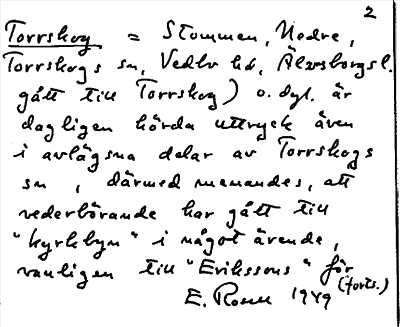 2
Torrskog = Stommen, Nedre,
Torrskogs sn, Vedbo hd, Älvsborgsl.
gått till Torrskog) o. dyl. är
dagligen hörda uttryck även
i avlägsna delar av Torrskogs
sn, därmed menandes, att
vederbörande har gått till
"kyrkbyn" i något ärende,
vanligen till "Erikssons" för
(forts.)
E. Rosell 1949